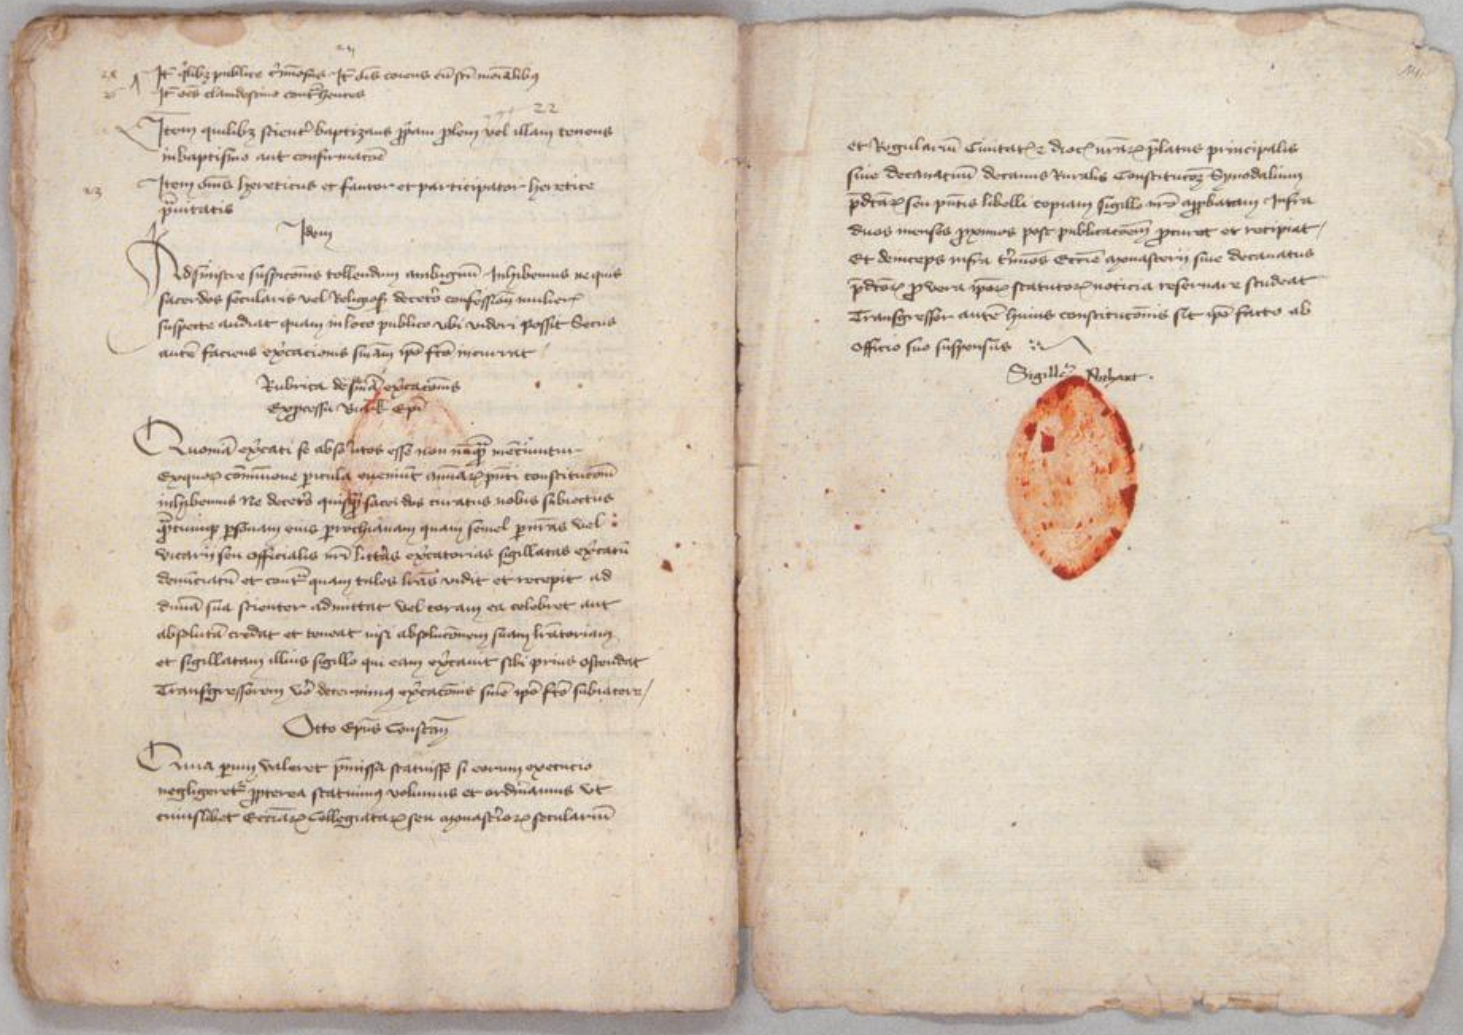 24
It q̄libꝫ publice
It oēs clandestine cont̄hentes
22
Item quilibꝫ scient̄ baptizans ꝓp̄am ꝓlem vel illam tenens
in baptismo aut confirmacōe
23 Item om̄s hereticus et fautor et participator heretice
p̄uitatis
Idem
Ad sinistre suspicōnis tollendam ambiguū Inhibemus ne quis
sacerdos secularis vel Religios⁹ decet̄o confessionē mulier
suspecte audiat quam in loco publico vbi videri possit Secus
autē faciens exc̄acionis sn̄iam ip̄o fc̄o incurrat
Rubrica de sn̄iā exc̄acōnis
Expressa Ep̄i
Quoniā exc̄ati se absolutos esse non nūq̄ᵃ menciuntur
Ex quoꝝ cōmunione picula eueniūt aīaꝝ pn̄ti constitucōni
inhibemus Ne decet̄o quisq̄ᵃ sacerdos curatus nobis subiectus
ꝑsonam eius prochianam quam semel p nr̄as vel
vicarii seu officialis nr̄i litt̄as exc̄atorias sigillatas exc̄atū
denūciatū et cont̄ quam tales lr̄as vidit et recepit ad
diuīa sua scienter admittat vel coram ea celebret aut
absolutā credat et teneat nisi absolucōnem suam lr̄atoriam
et sigillatam illius sigillo qui eam exc̄auit sibi prius ostendat
Transgressorem v̄o decernimꝰ exc̄acōnis sn̄ie ip̄o fc̄o subiacere
Otto Ep̄us Constan̄
Quia parum valeret p̄missa statuisse si eorum executio
negligeret̄ ꝓpterea statuimꝰ volumus et ordinamus vt
cuiuslibet Ecc̄iaꝝ Collegiataꝝ seu monast̄ioꝝ seculariū
et Regulariū Ciuitat̄ ꝛ dioc̄ nr̄aꝝ p̄latus principalis
siue decanatuū decanus Ruralis Constitucōꝝ Synodalium
p̄dc̄aꝝ seu pn̄tis libelli copiam sigillo nr̄o appbatam Infra
duos menses ꝓximos post publicacōem ꝓcuret et recipiat
Et deinceps infra t̄minos Ecc̄ie monasterii siue decanatus
p̄dc̄oꝝ ꝓ vera ip̄oꝝ statutoꝝ noticia reseruare studeat
Transgressor autē huius constitucōnis sit ip̄o facto ab
officio suo suspensus